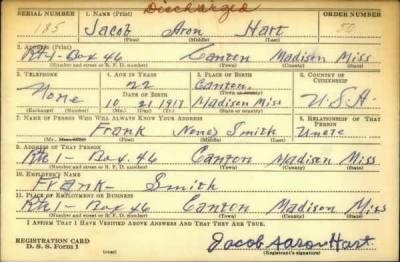 Discharged
SERIAL NUMBER 1. NAME (Print) ORDER NUMBER
185 Jacob Aron Hart 50
(First) (Middle) (Last)
2. ADDRESS (Print)
Rt 1- Box 46 Canton Madison Miss
(Number and street or R. F. D. number) (Town) (County) (State)
3. TELEPHONE 4. AGE IN YEARS 5. PLACE OF BIRTH 6. COUNTRY OF CITIZENSHIP
None 22 Canton
DATE OF BIRTH (Town or county)
10 21 1917 Madison Miss U.S.A.
(Exchange) (Number) (Mo.) (Day) (Yr.) (State or country)
7. NAME OF PERSON WHO WILL ALWAYS KNOW YOUR ADDRESS 8. RELATIONSHIP OF THAT PERSON
Frank None) Smith Uncle
(Mr., Mrs., Miss) (First) (Middle) (Last)
9. ADDRESS OF THAT PERSON
Rte 1- Box. 46 Canton Madison Miss
(Number and street or R. F. D. number) (Town) (County) (State)
10. EMPLOYER'S NAME
Frank- Smith
11. PLACE OF EMPLOYMENT OR BUSINESS
Rt 1- Box 46 Canton Madison Miss
(Number and street or R. F. D. number) (Town) (County) (State)
I AFFIRM THAT I HAVE VERIFIED ABOVE ANSWERS AND THAT THEY ARE TRUE.
REGISTRATION CARD
D. S. S. Form 1 Jacob Aaron Hart.
(Registrant's signature)